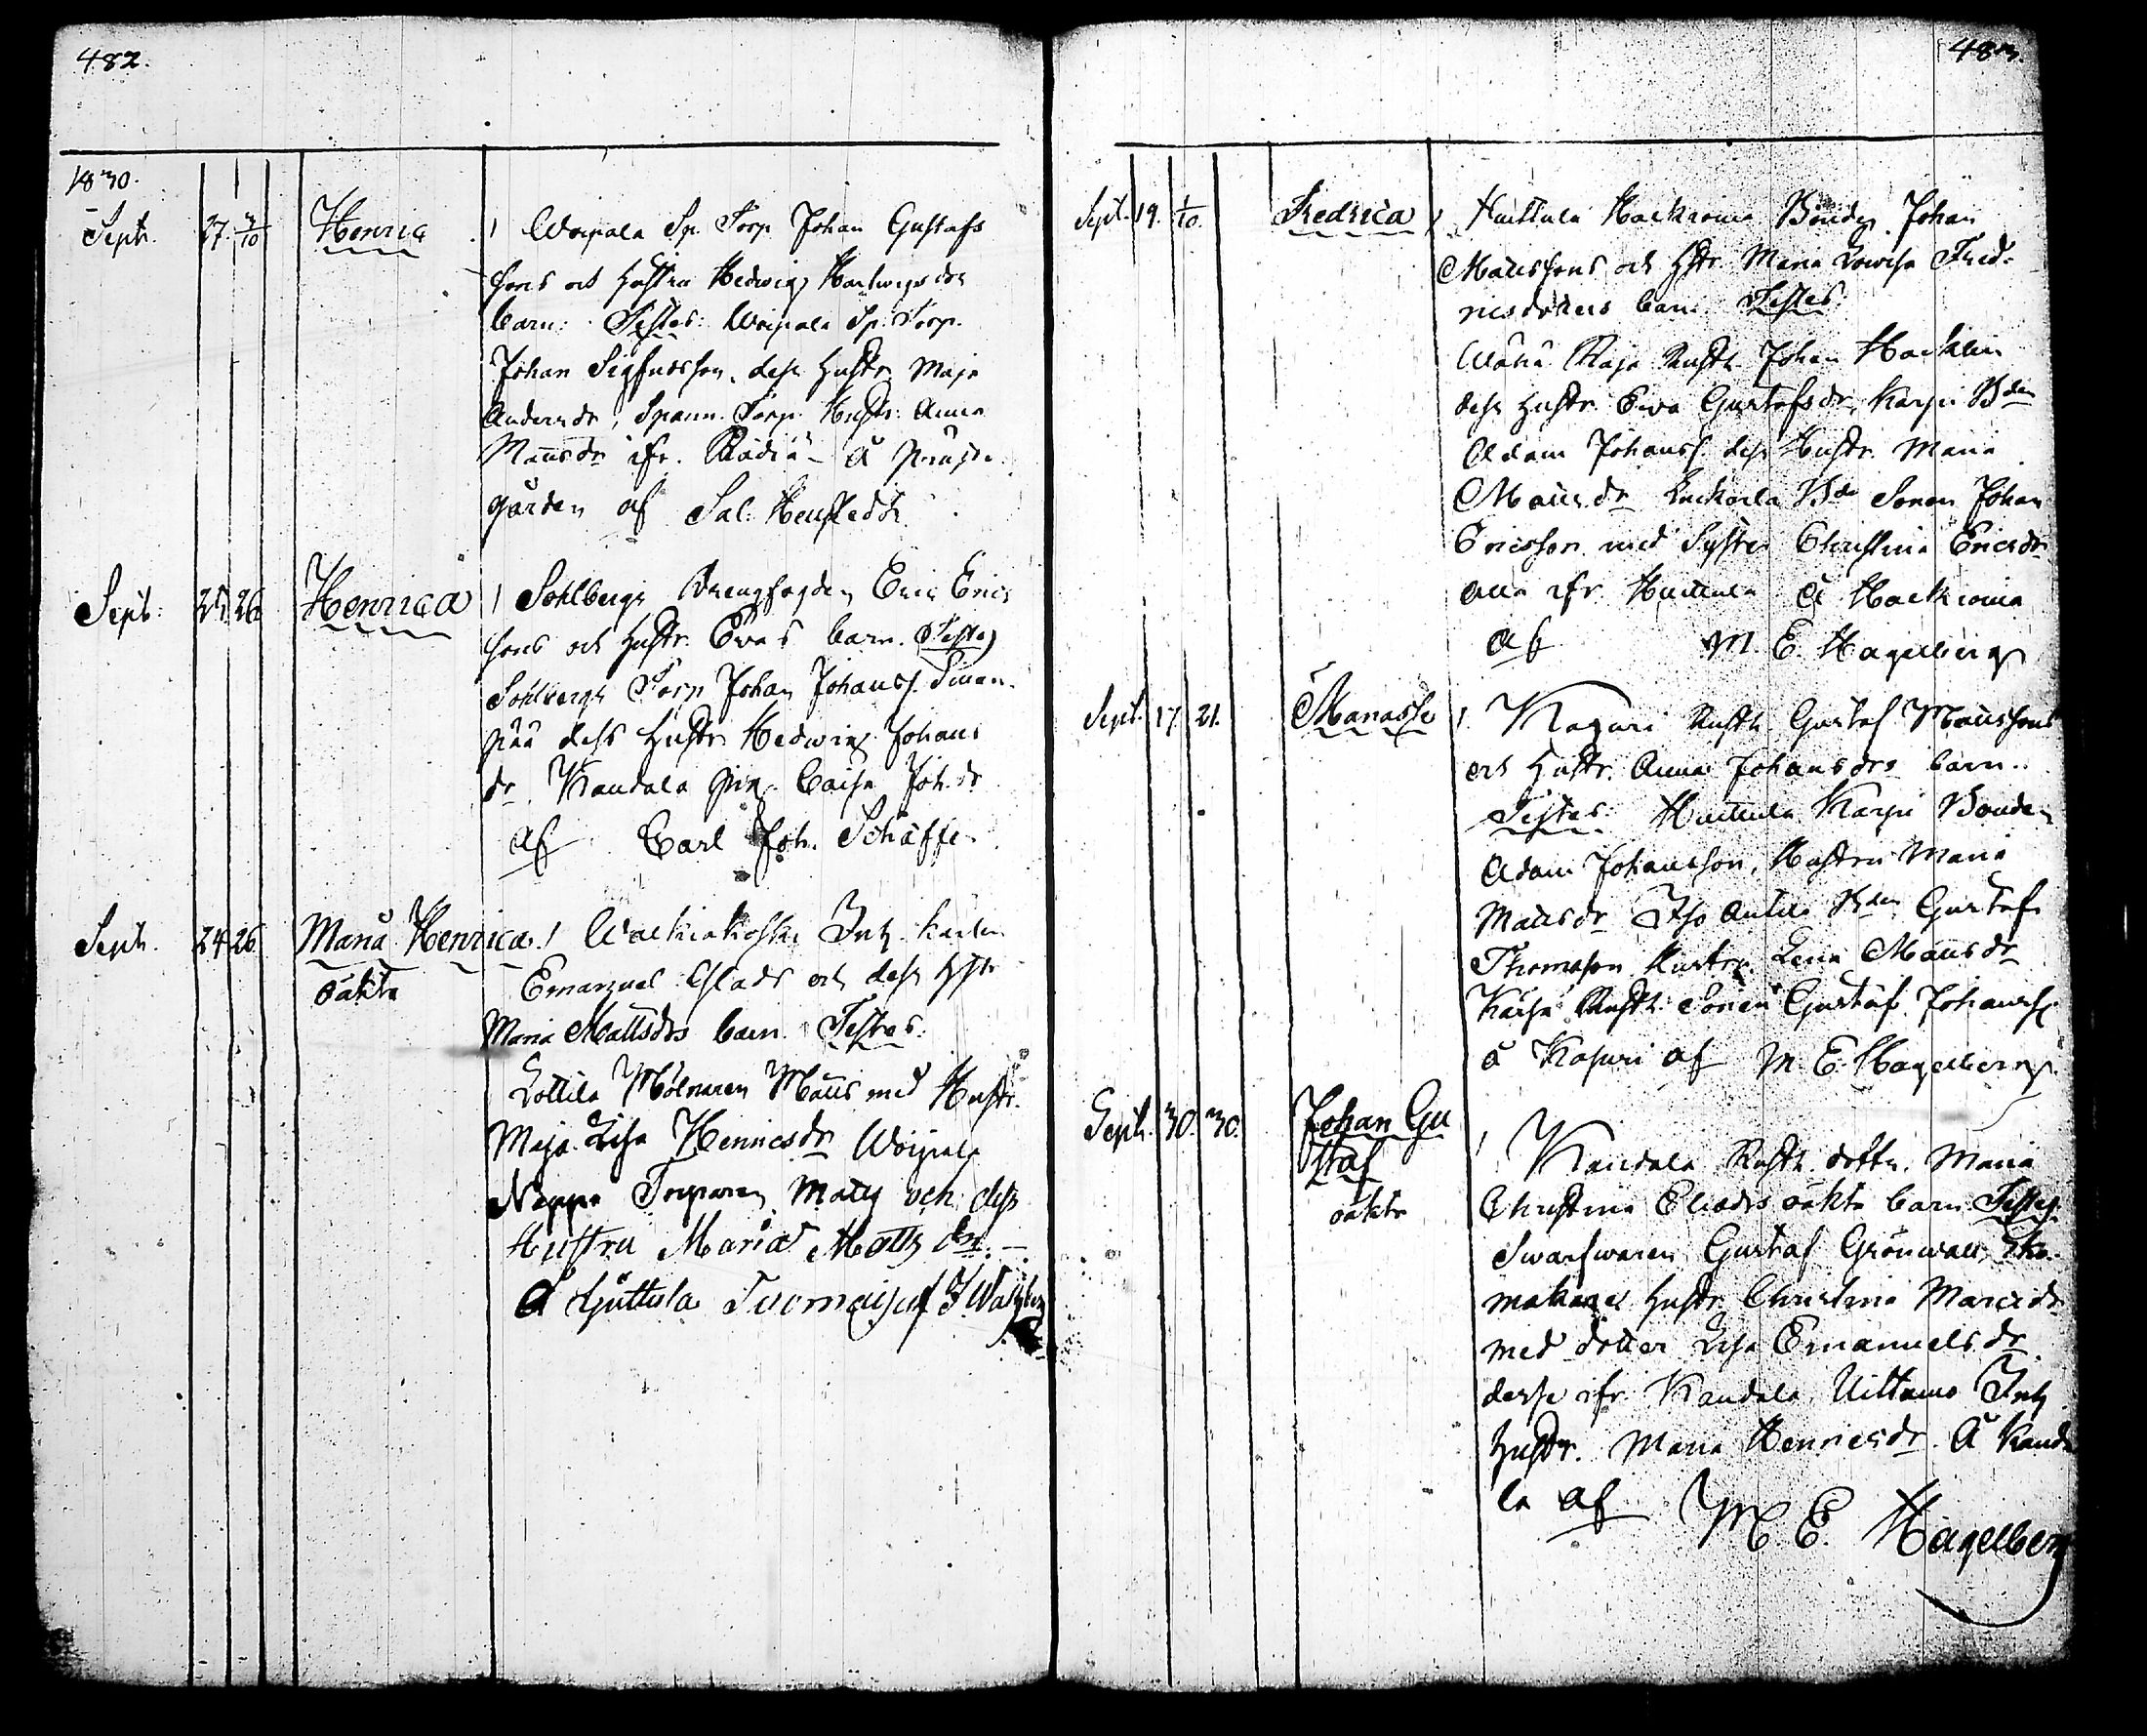 482.
1830.
Septr. 27. 3/10 Henric / Woipala Sp. Torp. Johan Gustafs
sons och hustru Hedwig Hartwigsdrs
barn: Testes: Woipala Sp. Torp.
Johan Sigfredsson, dess hustr. Maja
Andersdr, Spann. Torp. Hustr. Anna
Mattsdr ifr. å Präste
gården af Sal. Henr.
Sept: 25. 26. Henrica / Sohlbergs Drengfogden Eric Erics
sons och hustr. Evas barn. Testes
Sohlbergs Torp Johan Johanss.
pää dess hustr. Hedwig Johans
dr. Kandala pig. Caisa Joh.dr
af Carl Joh. Schäffer
Sept. 24. 26. Maria Henrica / Walkiakoski Inh. karlen
oäkta Emanuel och dess hstr
Maria Mattsdrs barn. Testes:
Lottila Mölnaren Matts med Hustr.
Maja Lisa Henricsdr Woipala
Neppe Torparen Matts och dess
Hustru Maria Matts dr. —
å Huttula Tuomais af J. Wallgren
483.
Sept. 19. 1/10. Fredrica / Huttula Hackroina Bonden Johan
Mattssons och hstr. Maria Lowisa Fred-
ricsdotters barn. Testes:
Rusth. Johan Hacklin
dess hustr. Ewa Gustafsdr, Karpi Bden
Adam Johanss. dess Hustr. Maria
Mattsdr Bde Sonen Johan
Ericsson med Syster Christina Ericsdr
alla ifr. Huttula å Hackroina
af M. E. Hagelberg
Sept. 17. 21. Manasse / Kaguri Rusth. Gustaf Mattssons
och hustr. Anna Johansdrs barn.
Testes: Huttula Karpi Bonden
Adam Johansson, Hustru Maria
Mattsdr Iso Antila Bden Gustaf
Thomasson Hustru Lena Mattsdr
Rusth. Sonen Gustaf Johanss.
å Kaguri af M. E. Hagelberg.
Sept. 30. 30. Johan Gu
staf
oäkta / Kandala Rusth. dottr. Maria
Christina Eliædrs oäkta barn Testes:
Swarfwaren Gustaf Grönwall, Sko-
makares hustr. Christina Marcidr
med dotter Lisa Emanuelsdr
desse ifr. Kandala, Uittamo Inh.
hustr. Maria Henricsdr. å Kanda
la af M. E. Hagelberg